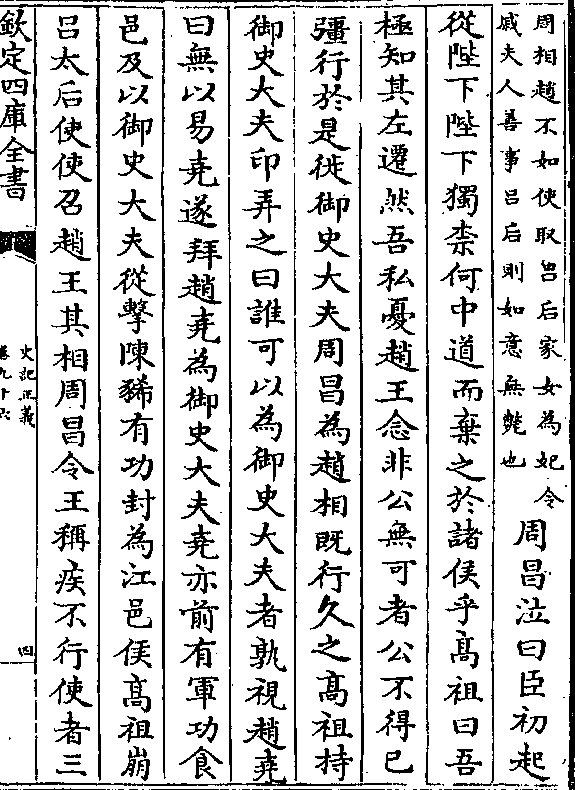 周相趙不如使取呂后家女為妃令
戚夫人善事呂后則如意無斃也
周昌泣曰臣初起
從陛下陛下獨柰何中道而棄之於諸侯乎髙祖曰吾
極知其左遷然吾私憂趙王念非公無可者公不得已
彊行於是徙御史大夫周昌為趙相既行久之髙祖持
御史大夫印弄之曰誰可以為御史大夫者孰視趙堯
曰無以易堯遂拜趙堯為御史大夫堯亦前有軍功食
邑及以御史大夫從擊陳豨有功封為江邑侯髙祖崩
呂太后使使召趙王其相周昌令王稱疾不行使者三
欽定四庫全書
史記正義
卷九十六
四